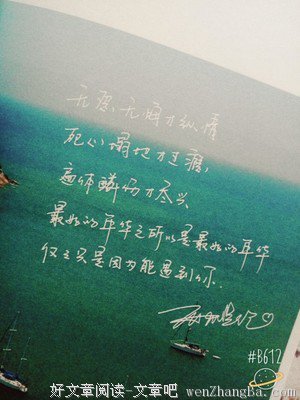 无愿无悔才纵情
死心塌地才过瘾,
遍体鳞伤才尽兴.
最好的年华之所以是最好的年华
仅仅只是因为能遇到你.
#B612
好文章阅读-文章吧 wenZhangBa.Com